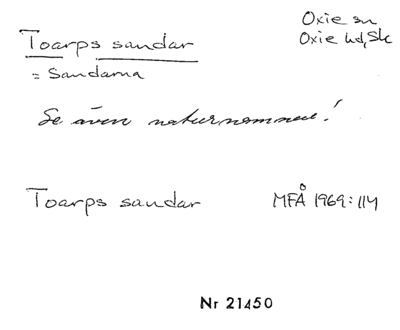 Toarps sandar
Oxie sn
Oxie hd, Sk
= Sandarna
Se även naturnamnen!
Toarps sandar MFÅ 1969:114
Nr 21450